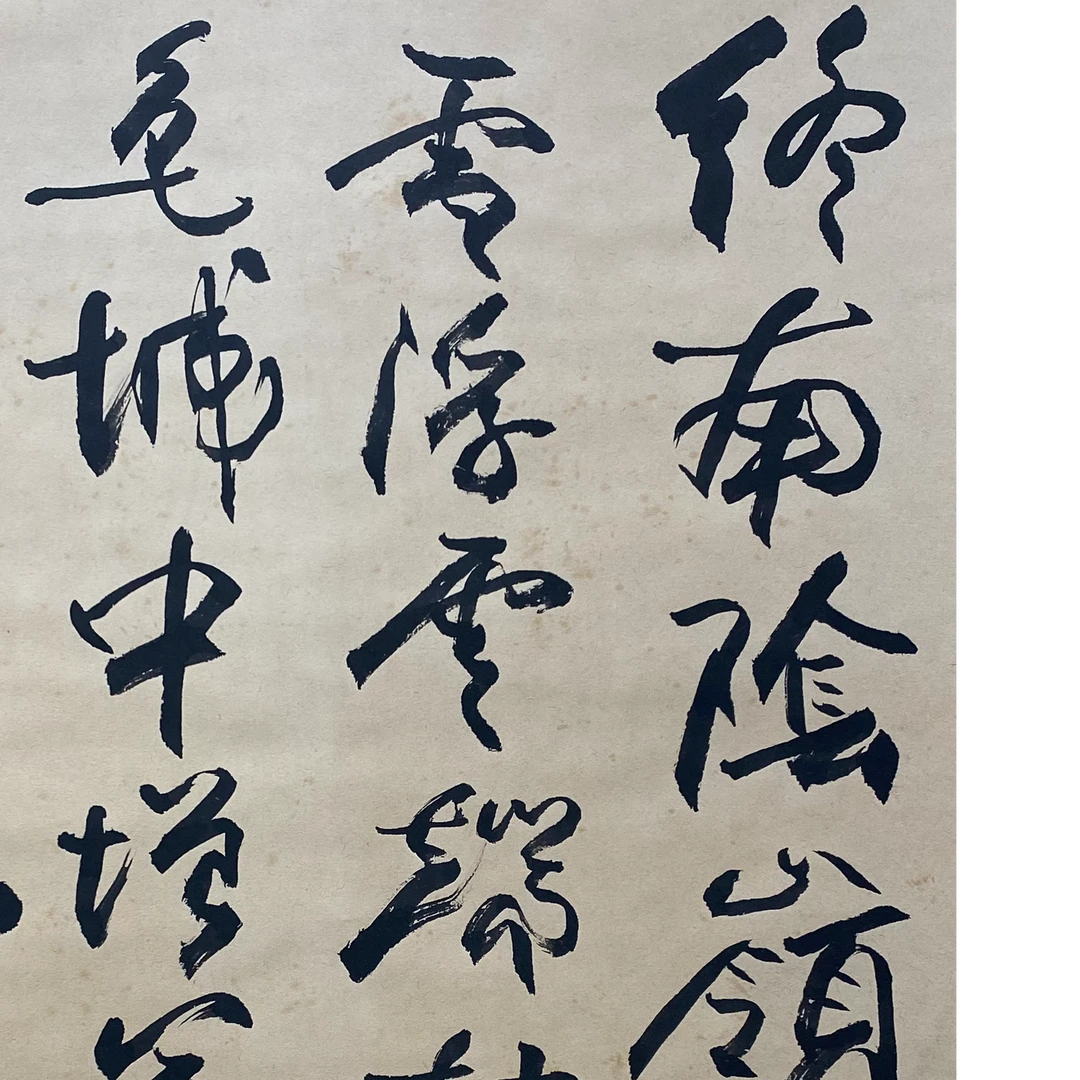 終南陰嶺
雪浮雲端
色城中增